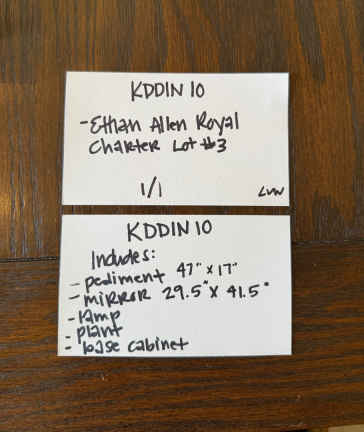 KDDIN 10
-Ethan Allen Royal
Charter Lot #3
1/1
LVW
KDDIN 10
Includes:
- pediment 47" x 17"
- mirror 29.5" x 41.5"
- lamp
- plant
- base cabinet